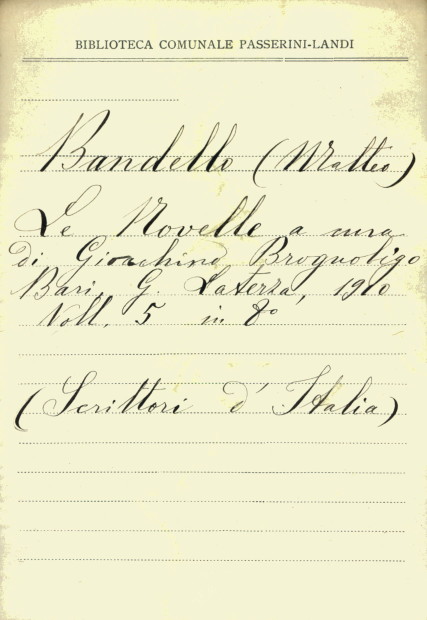 BIBLIOTECA COMUNALE PASSERINI-LANDI
Bandello (Matteo)
Le Novelle a cura
di Gioachino Brognoligo
Bari, G. Laterza, 1910
Voll. 5 in 8°
(Scrittori d'Italia)